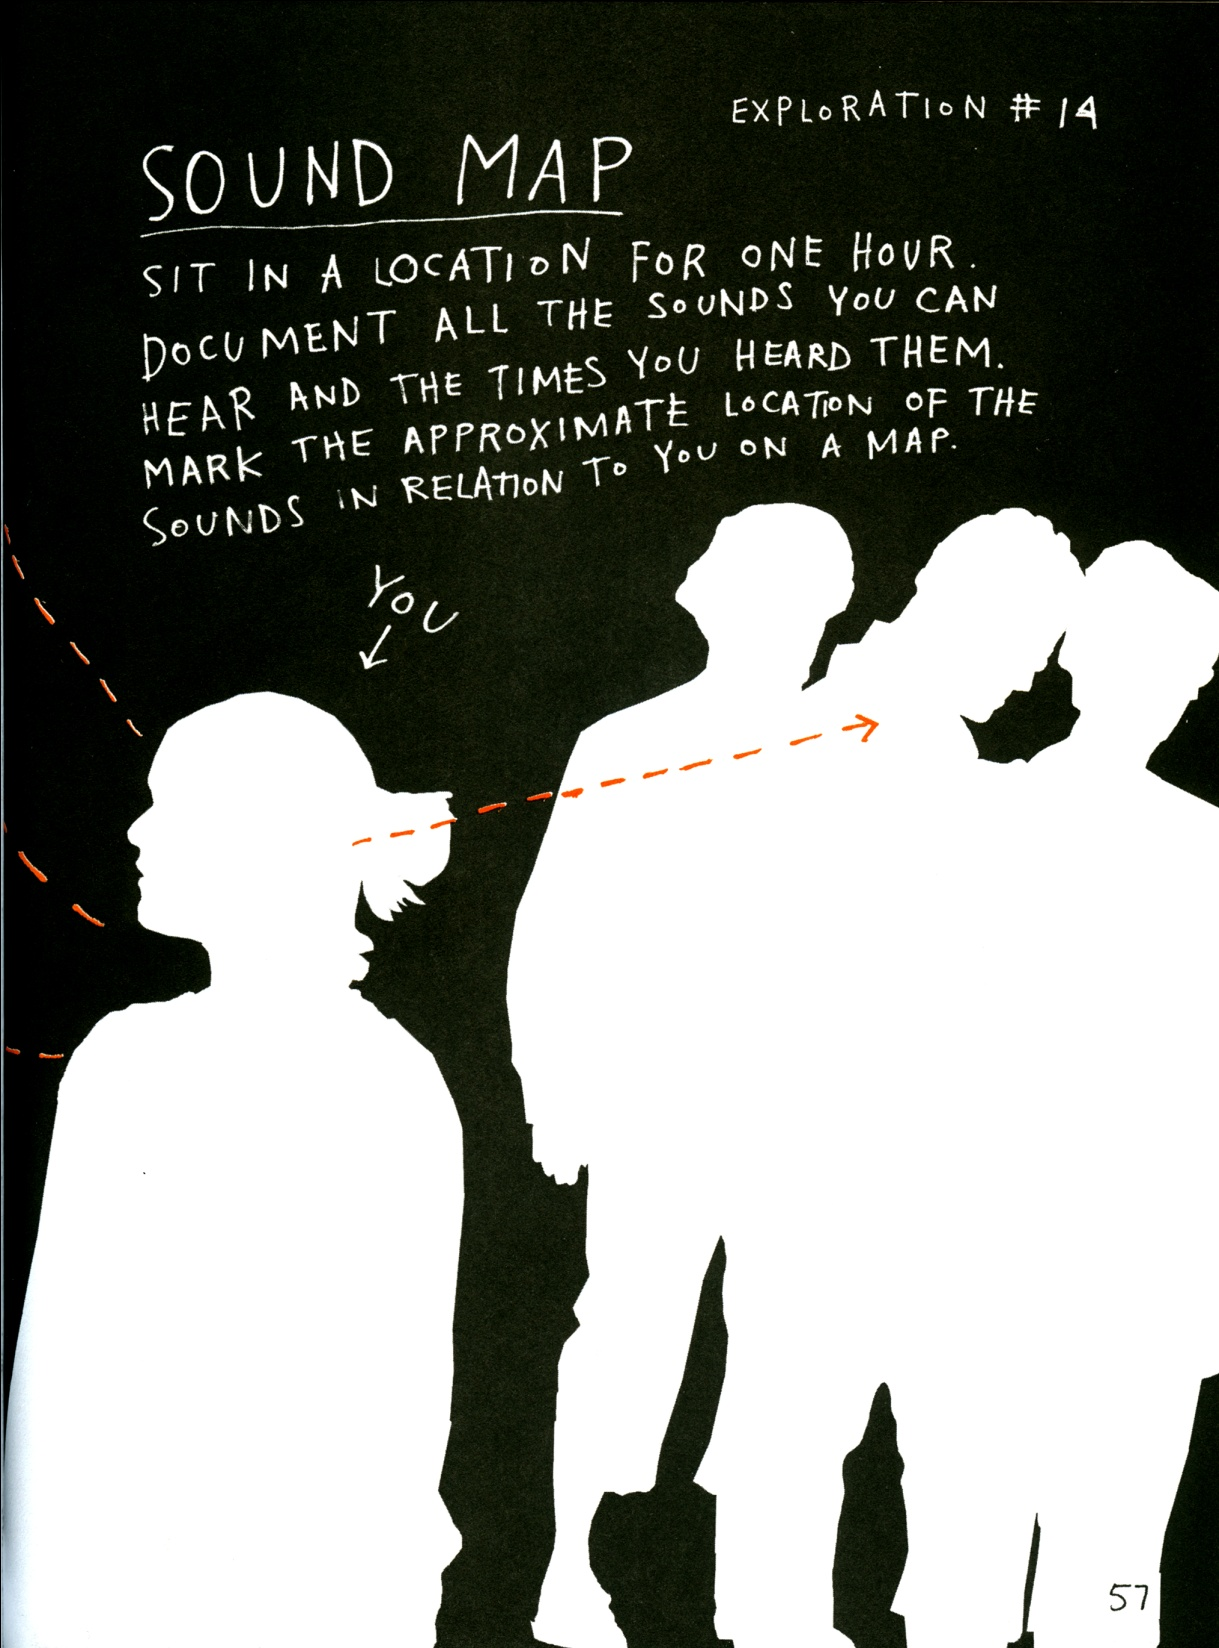 EXPLORATION # 14
SOUND MAP
SIT IN A LOCATION FOR ONE HOUR.
DOCUMENT ALL THE SOUNDS YOU CAN
HEAR AND THE TIMES YOU HEARD THEM.
MARK THE APPROXIMATE LOCATION OF THE
SOUNDS IN RELATION TO YOU ON A MAP.
YOU
57